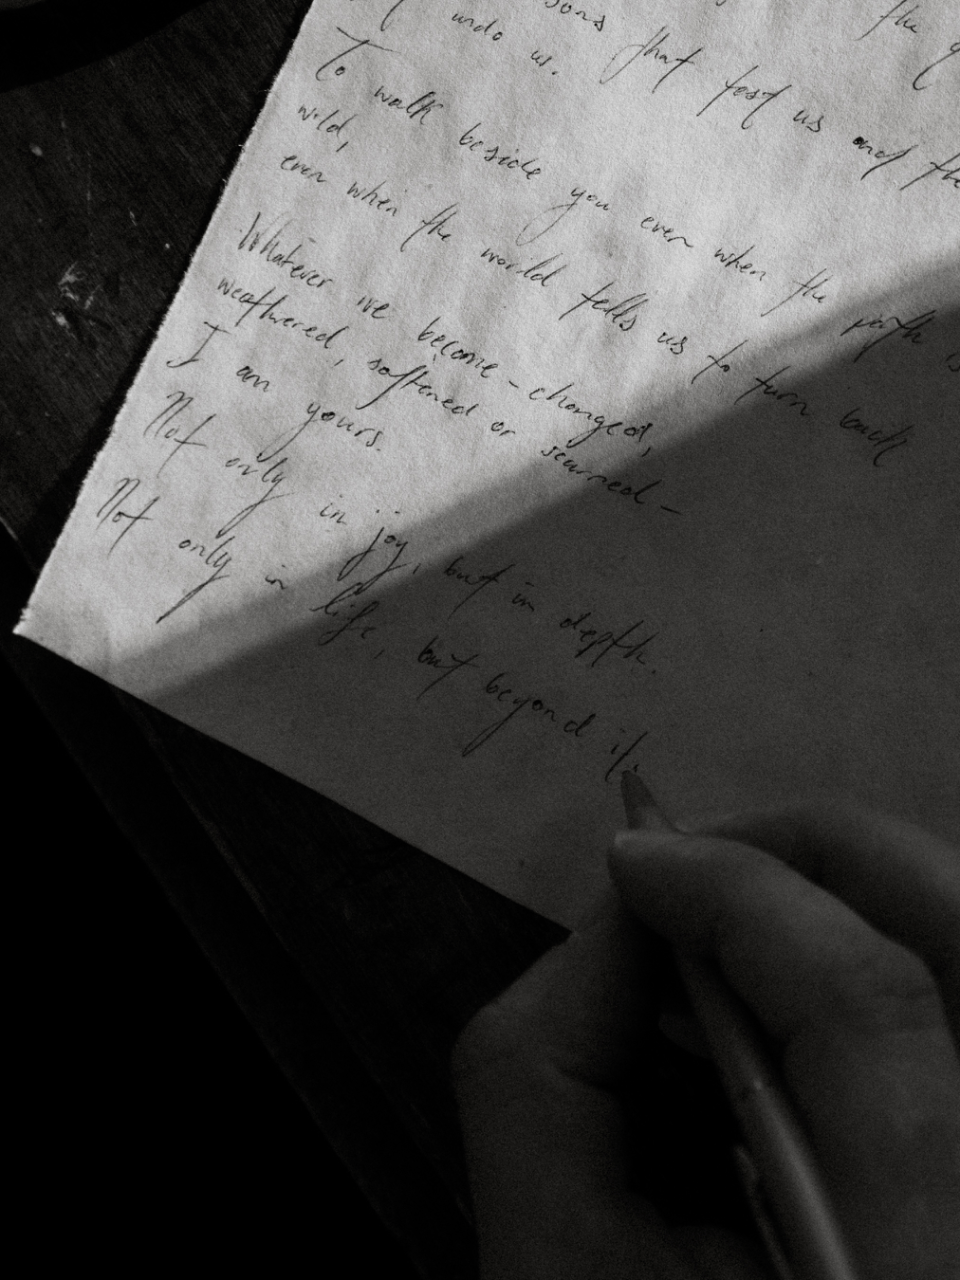 the
undo us. that test us and the
To walk beside you even when the path is
wild,
even when the world tells us to turn back
Whatever we become - changed,
weathered, softened or scarred -
I am yours.
Not only in joy, but in depth.
Not only in life, but beyond it.